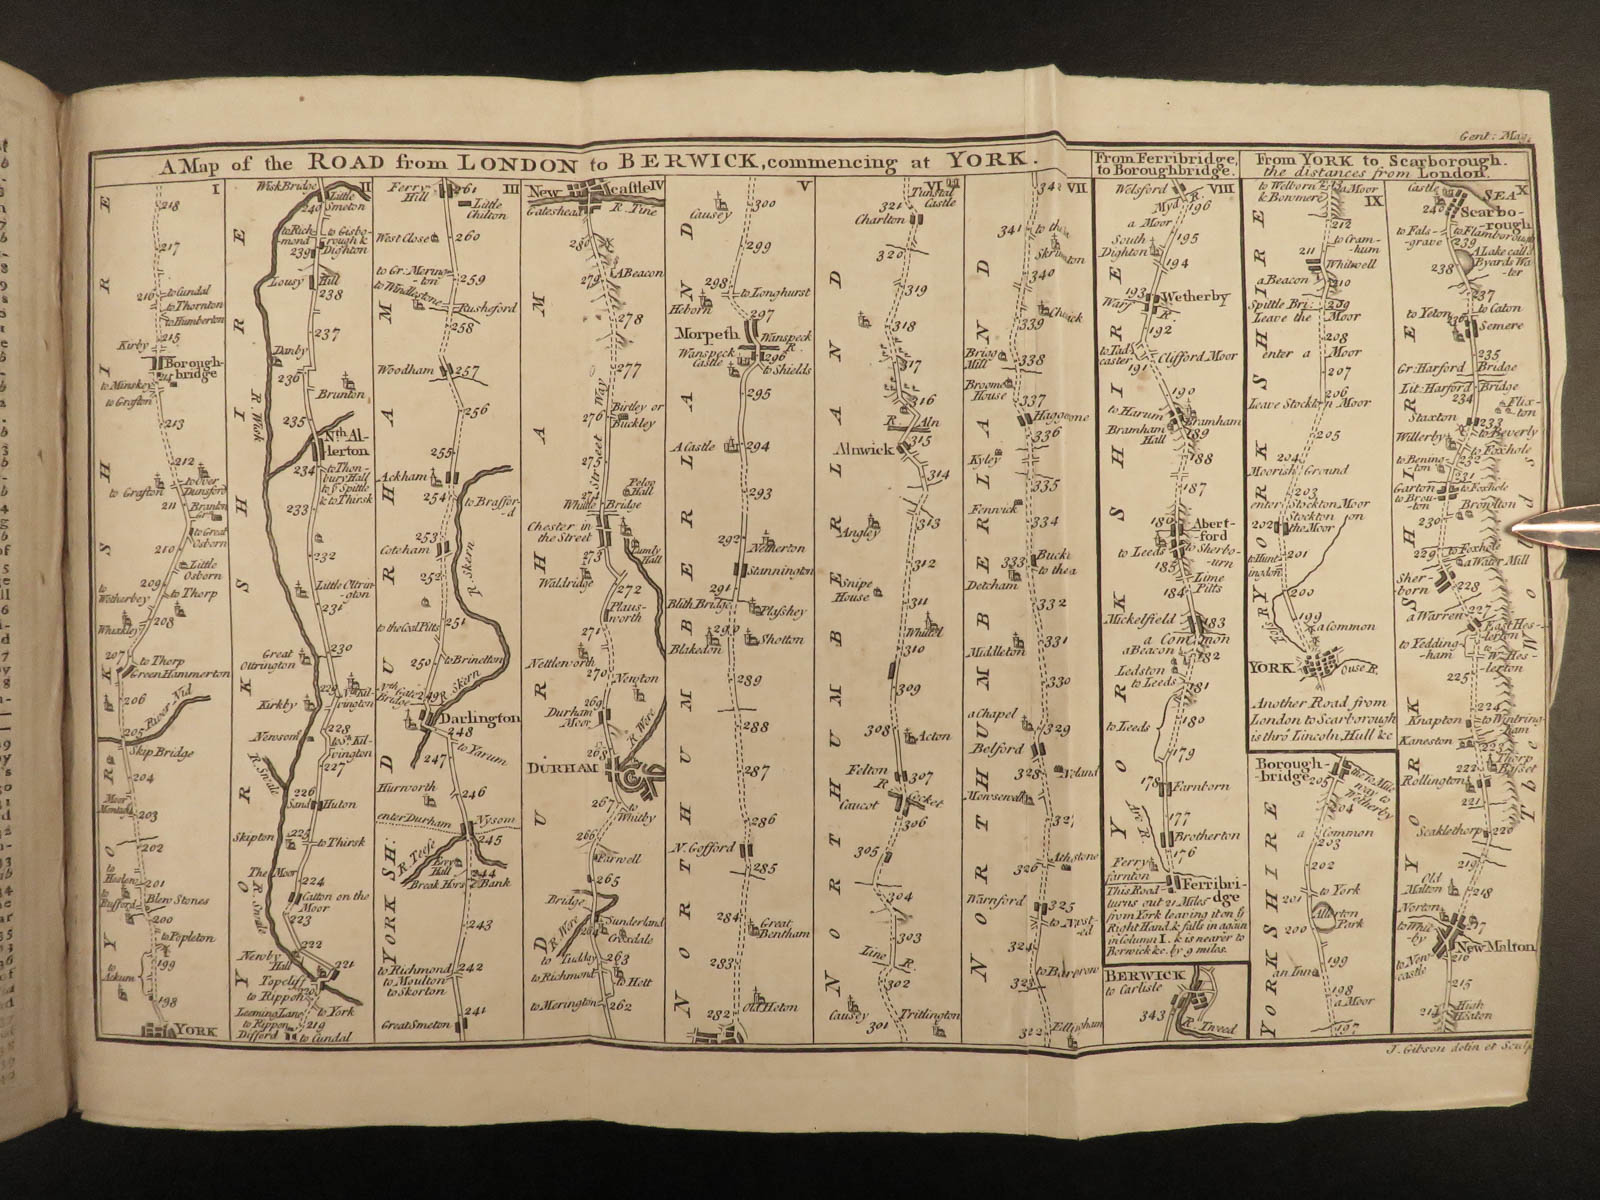 Gent: Mag.
A Map of the ROAD from LONDON to BERWICK, commencing at YORK.
From Ferribridge, to Boroughbridge.
From YORK to Scarborough. the distances from London.
I
218
217
216
to Cundal
to Thornton
to Humberton
215
Kirby
Borough-
bridge
to Minskey
to Grafton
213
212
to Grafton
to Over
Dunsford
211
Branton
Gr.
to Great
Osborn
210
Little
Osborn
209
to
Wetherbey
to Thorp
Whixley
208
207
to Thorp
Green Hammerton
206
River Nid
205
Skip Bridge
204
Moor
203
202
201
Blew Stones
200
to Popleton
199
to
Ackum
198
YORK
YORKSHIRE
II
Wisk Bridge
Little
Smeton
240
to Rich-
mond
to Gisbo-
rough &
Dighton
239
Lousy Hill
238
237
Danby
236
Brunton
R. Wisk
235
Nth. Al-
lerton
234
to Thon-
bury Hall
to y Spittle
& to Thirsk
233
232
Little Ottrin-
gton
231
Great
Ottrington
230
229
Nth. Kil-
vington
Kirkby
228
Newsom
to Sth. Kil-
vington
227
R. Swale
226
Sand Huton
Skipton
225
to Thirsk
The Moor
224
Catton on the
Moor
223
R. Swale
222
Newby
Hall
221
Topcliff
220
to Rippon
to York
Leeming Lane
to Rippon
219
Difford
to Cundal
YORKSHIRE
III
Ferry
Hill
261
Little
Chilton
West Close
260
to Gr: Moring-
ton
259
to Windlestone
Rusheford
258
Woodham
257
256
255
Ackham
254
to Braffor-
d
253
Cotcham
252
R. Skern
251
to the Coal Pitts
250
to Brinelton
Nth Gate
Bridge
249
R. Skern
Darlington
248
247
to Yarum
Hurworth
246
enter Durham
Nysom
245
R. Teese
Erry
Hall
244
Break Hors
Bank
243
to Richmond
242
to Moulton
to Skorton
Great Smeton
241
DURHAM
YORKSH:
IV
New castle
Gateshead
R. Tine
280
A Beacon
279
278
277
Street Way
276
Birtley or
Buckley
275
Pelog
Hall
Whitle Bridge
Chester in
the Street
273
Lumly
Hall
Waldridge
272
Plaus-
worth
271
Nettleworth
270
Newton
269
Durham
Moor
R. Were
268
DURHAM
267
to
Whitby
266
Farwell
265
Bridge
R. Ware
Sunderland
264
Croxdale
to Tudday
263
to Richmond
to Holt
to Merington
262
DURHAM
V
Causey
300
299
298
to Longhurst
Heborn
297
Morpeth
Wanspeck
R.
Wanspeck
Castle
296
to Shields
295
A Castle
294
293
292
Netherton
Stannington
291
Blith Bridge
Plashey
290
Shotton
Blakedon
289
288
287
286
N. Gofford
285
284
Great
Bentham
283
old Hoton
282
NORTHUMBERLAND
VI
Tunstal
Castle
321
Charlton
320
319
318
317
316
R. Aln
315
Alnwick
314
313
Angley
312
Snipe
House
311
Whittel
310
309
308
Acton
Felton
307
R. Cocket
Caucot
306
305
304
303
Line R.
302
Causey
Tritlington
301
NORTHUMBERLAND
VII
342
341
340
339
Brigg
Mill
338
Broome
House
337
Haggerone
336
Kyley
335
Fenwick
334
333
Bucki
to the a
Detcham
332
331
Middleton
330
a Chapel
329
Belford
328
Noland
Mowsenwall
327
Athstone
326
Warnford
325
324
323
Ellingham
322
NORTHUMBERLAND
VIII
Welsford
Myd R.
196
a Moor
South
Dighton
195
194
193
Wetherby
Warf R.
192
to Tad-
caster
Clifford Moor
191
190
to Harum
Bramham
Bramham
Hall
189
188
187
186
Abert-
ford
to Leeds
to Sherbo-
urn
185
Lime
Pitts
184
Mickelfield
183
a Common
a Beacon
182
Ledston
to Leeds
181
to Leeds
180
179
178
Farnborn
177
Are R.
Brotherton
176
Ferry
farnton
Ferribri-
dge
This Road
turns out 21 Miles
from York leaving it on y
Right Hand, & falls in again
in Column I. & is nearer to
Berwick &c. by 9 miles.
YORKSHIRE
BERWICK
to Carlisle
343
R. Tweed
IX
to Welborn
& Bowmere
a Moor
212
to Cram-
hum
211
Whitwell
a Beacon
210
Spittle Bri:
209
Leave the Moor
208
enter a Moor
207
206
Leave Stockton Moor
205
204
Moorish Ground
203
enter Stockton Moor
Stockton on
the Moor
202
to Hunt-
ingdon
201
200
Foss R.
199
a Common
YORK
Ouse R.
YORKSHIRE
Another Road from
London to Scarborough
is thro' Lincoln, Hull &c
Borough-
-bridge
205
the 10 Mile
way to
Wetherby
204
a Common
203
202
to York
201
Allerton
Park
200
199
an Inn
198
a Moor
197
YORKSHIRE
X
Castle
SEA
Scarbo-
rough
240
to Fals-
grave
to Flamborough
239
A Lake call'd
Byards Wa-
ter
238
237
to Caton
to Yeton
236
Semere
235
Gr: Harford Bridge
Lit: Harford Bridge
234
Flix-
ton
Staxton
233
to Beverly
Willerby
to Foxhole
232
to Bening-
ton
231
Garton
to Foxhole
to Brou-
ton
Brompton
230
229
to Foxhole
a Water Mill
Sher-
born
228
227
a Warren
East Hes-
lerton
to Yedding-
ham
W. Hes-
lerton
225
224
Knapton
to Wintring-
ham
Kaneston
223
Thorp
Basset
222
Rollington
221
Scaklethorp
220
219
Old
Malton
218
Norton
217
to Whit-
by
New Malton
216
to New-
castle
215
High
Hoaton
214
YORKSHIRE
J. Gibson delin et Sculp